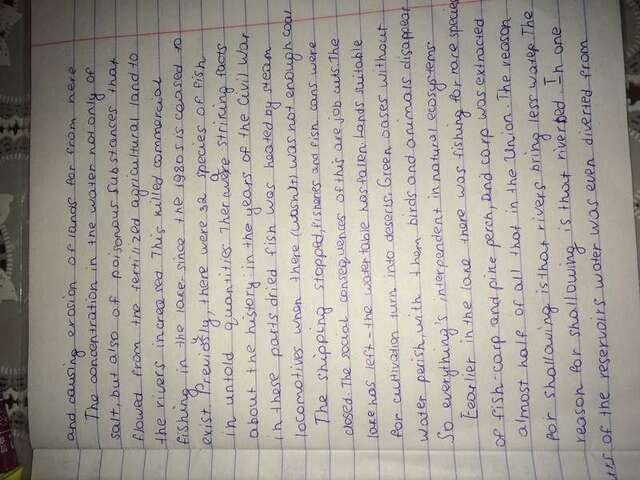 and causing erosion of lands for from here
The concentration in the water not only of
salt, but also of poisonous substances that
flowed from the fertilized agricultural land to
the rivers increased This killed commercial
fishing in the lake - since the 1980s is ceased to
exist. Previously, there were 32 species of fish
in untold quantities Ther are striking facts
about the history in the years of the Civil War
in these parts dried fish was heated by steam
locomotives when there (wasn't) was not enough coal
The shipping stopped, fisheries and fish cans were
closed. The social consequences of this are job cuts. The
lake has left - the water table has fallen. Lands suitable
for cultivation turn into deserts. Green oases without
water perish, with them birds and animals disappear
So everything's interpendent in natural ecosystems.
Eearlier in the lake there was fishing for rare species
of fish - carp and pike perch, and carp was extracted
almost half of all that in the Union. The reason
for shallowing is that rivers bring less water. The
reason for shallowing is that riverbed. In one
of the reservoirs water was even diverted from